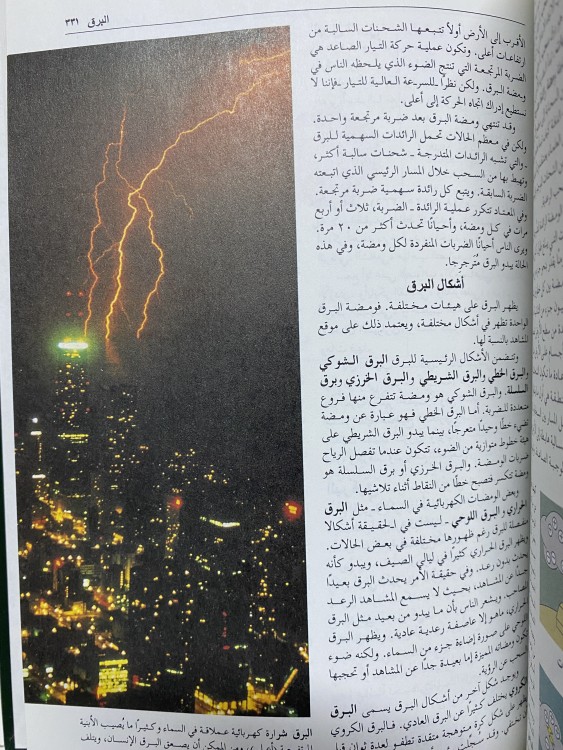 البرق ٣٣١
الأقرب إلى الأرض أولاً تتبعها الشحنات السالبة من
ارتفاعات أعلى. وتكون عملية حركة التيار الصاعد هي
الضربة المرتجعة التي تنتج الضوء الذي يلحظه الناس في
ومضة البرق. ولكن نظرًا للسرعة العالية للتيار ـ فإننا لا
نستطيع إدراك اتجاه الحركة إلى أعلى.
وقد تنتهي ومضة البرق بعد ضربة مرتجعة واحدة.
ولكن في معظم الحالات تحمل الرائدات السهمية للبرق
ـ والتي تشبه الرائدات المتدرجة ـ شحنات سالبة أكثر،
وتهبط بها من السحب خلال المسار الرئيسي الذي اتبعته
الضربة السابقة. ويتبع كل رائدة سهمية ضربة مرتجعة.
وفي المعتاد تتكرر عملية الرائدة ـ الضربة، ثلاث أو أربع
مرات في كل ومضة، وأحيانًا تحدث أكثر من ٢٠ مرة.
ويرى الناس أحيانًا الضربات المنفردة لكل ومضة، وفي هذه
الحالة يبدو البرق مُترجرجا.
أشكال البرق
يظهر البرق على هيئات مختلفة. فومضة البرق
الواحدة تظهر في أشكال مختلفة، ويعتمد ذلك على موقع
المشاهد بالنسبة لها.
وتتضمن الأشكال الرئيسية للبرق البرق الشوكي
والبرق الخطي والبرق الشريطي والبرق الخرزي وبرق
السلسلة. والبرق الشوكي هو ومضة تتفرع منها فروع
متعددة للضربة. أما البرق الخطي فهو عبارة عن ومضة
تضيء خطًا وحيدًا متعرجًا، بينما يبدو البرق الشريطي على
هيئة خطوط متوازية من الضوء، تتكون عندما تفصل الرياح
ضربات الومضة. والبرق الخرزي أو برق السلسلة هو
ومضة تنكسر فتصبح خطًا من النقاط أثناء تلاشيها.
وبعض الومضات الكهربائية في السماء ـ مثل البرق
الحراري والبرق اللوحي ـ ليست في الحقيقة أشكالا
منفصلة للبرق رغم ظهورها مختلفة في بعض الحالات.
ويظهر البرق الحراري كثيرًا في ليالي الصيف، ويبدو كأنه
يحدث بدون رعد. وفي حقيقة الأمر يحدث البرق بعيدًا
جدًا عن المشاهد، بحيث لا يسمع المشاهد الرعد
المصاحب. ويشعر الناس بأن ما يبدو من بعيد مثل البرق
الحراري، ماهو إلا عاصفة رعدية عادية. ويظهر البرق
اللوحي على صورة إضاءة جزء من السماء. ولكنه ضوء
تكون ومضاته المميزة إما بعيدة جدًا عن المشاهد أو تحجبها
السحب عن الرؤية.
ويوجد شكل آخر من أشكال البرق يسمى البرق
الكروي يختلف كثيرًا عن البرق العادي. فالبرق الكروي
يظهر على شكل كرة متوهجة متقدة تطفو لعدة ثوان قبل
البرق شرارة كهربائية عملاقة في السماء وكثيرًا ما يُصيب الأبنية
ومن الممكن أن يصعق البرق الإنسان، ويتلف